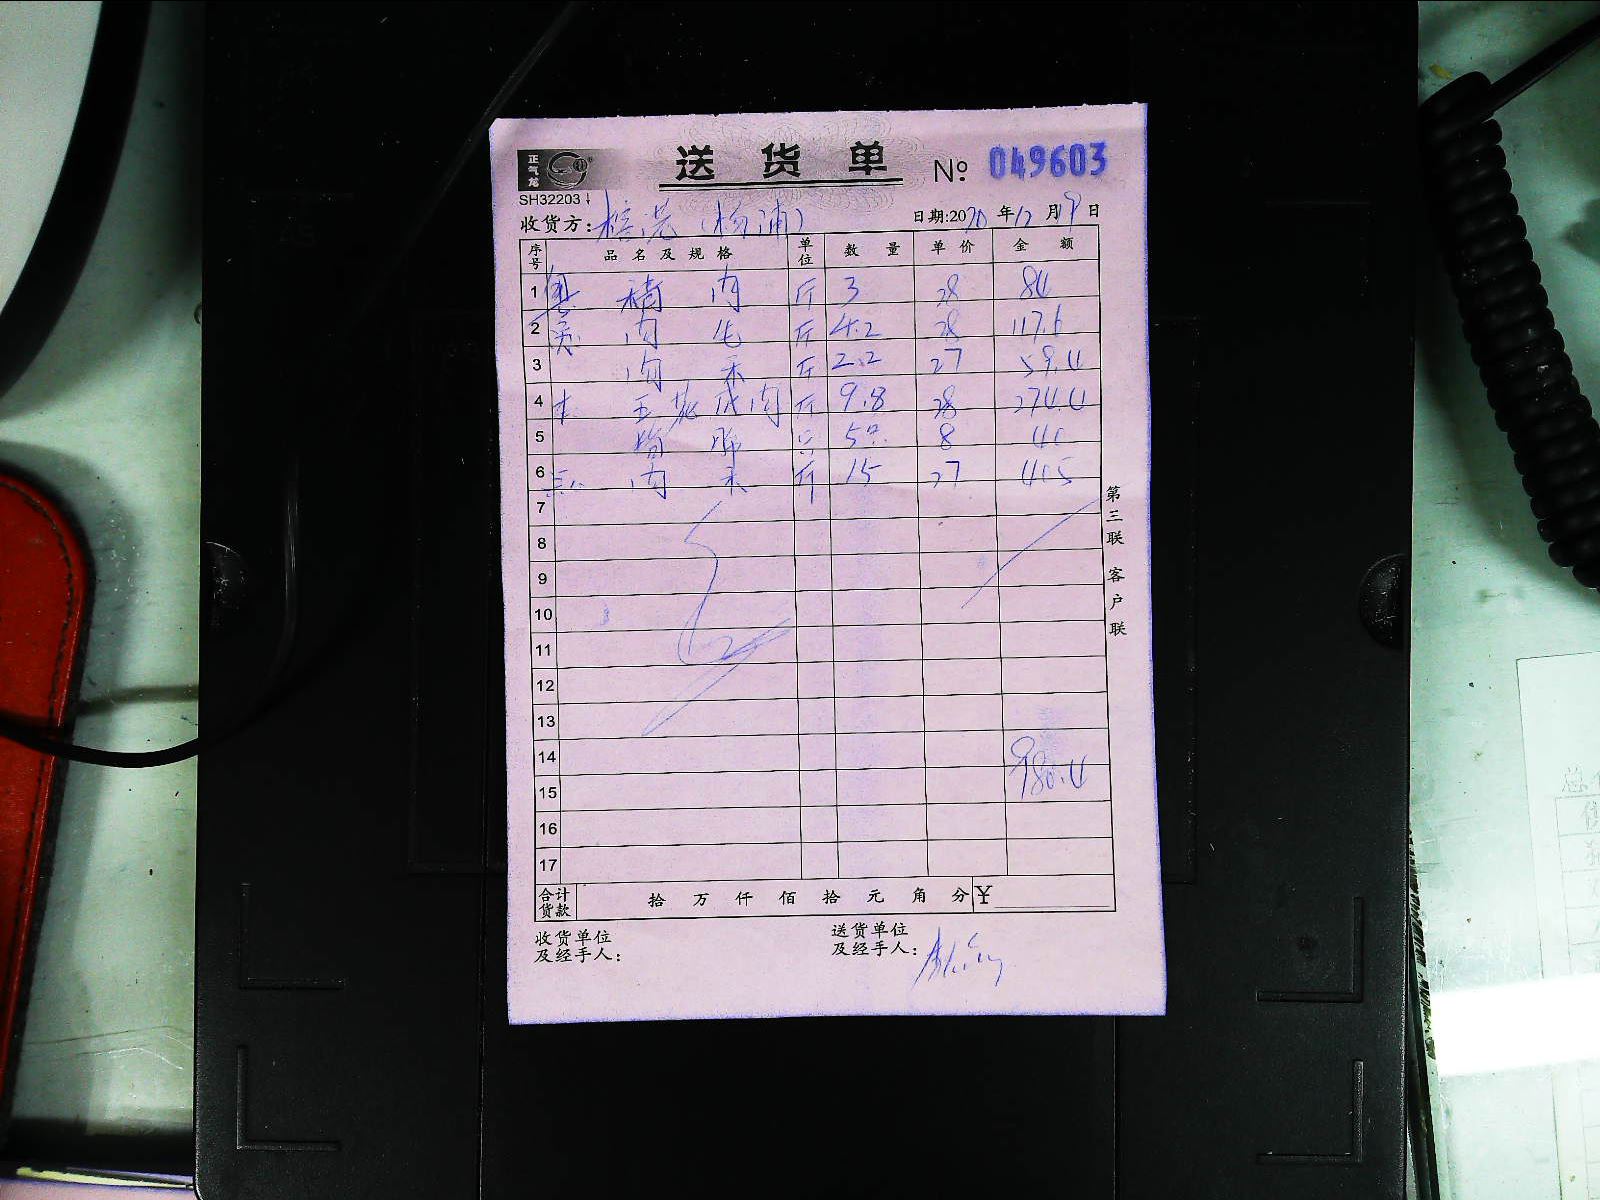 正气龙
送 货 单 № 049603
SH32203
收货方: (杨浦) 日期:2020年12月19日
序号 品 名 及 规 格 单位 数 量 单 价 金 额
1 肉 斤 3 28 84
2 肉 斤 4.2 28 117.6
3 肉 斤 2.2 27 59.4
4 五花肉 斤 9.8 28 274.4
5 只 5只 8 40
6 肉 斤 15 27 405
7
8
9
10
11
12
13
14
980.4
15
16
17
合计货款 拾 万 仟 佰 拾 元 角 分 ¥
收货单位
及经手人:
送货单位
及经手人:
第三联 客户联